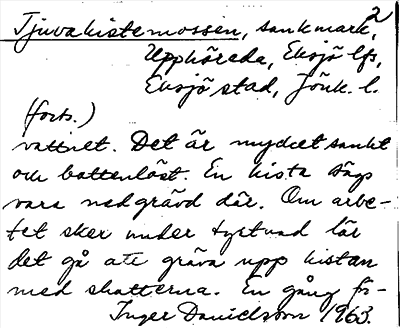 2
Tjuvakistemossen, sankmark,
Upphöreda, Eksjö lfs,
Eksjö stad, Jönk. l.
(forts.)
vattnet. Det är mycket sankt
och bottenlöst. En kista sägs
vara nedgrävd där. Om arbe-
tet sker under tystnad lär
det gå att gräva upp kistan
med skatterna. En gång för-
Inger Danielsson 1963.